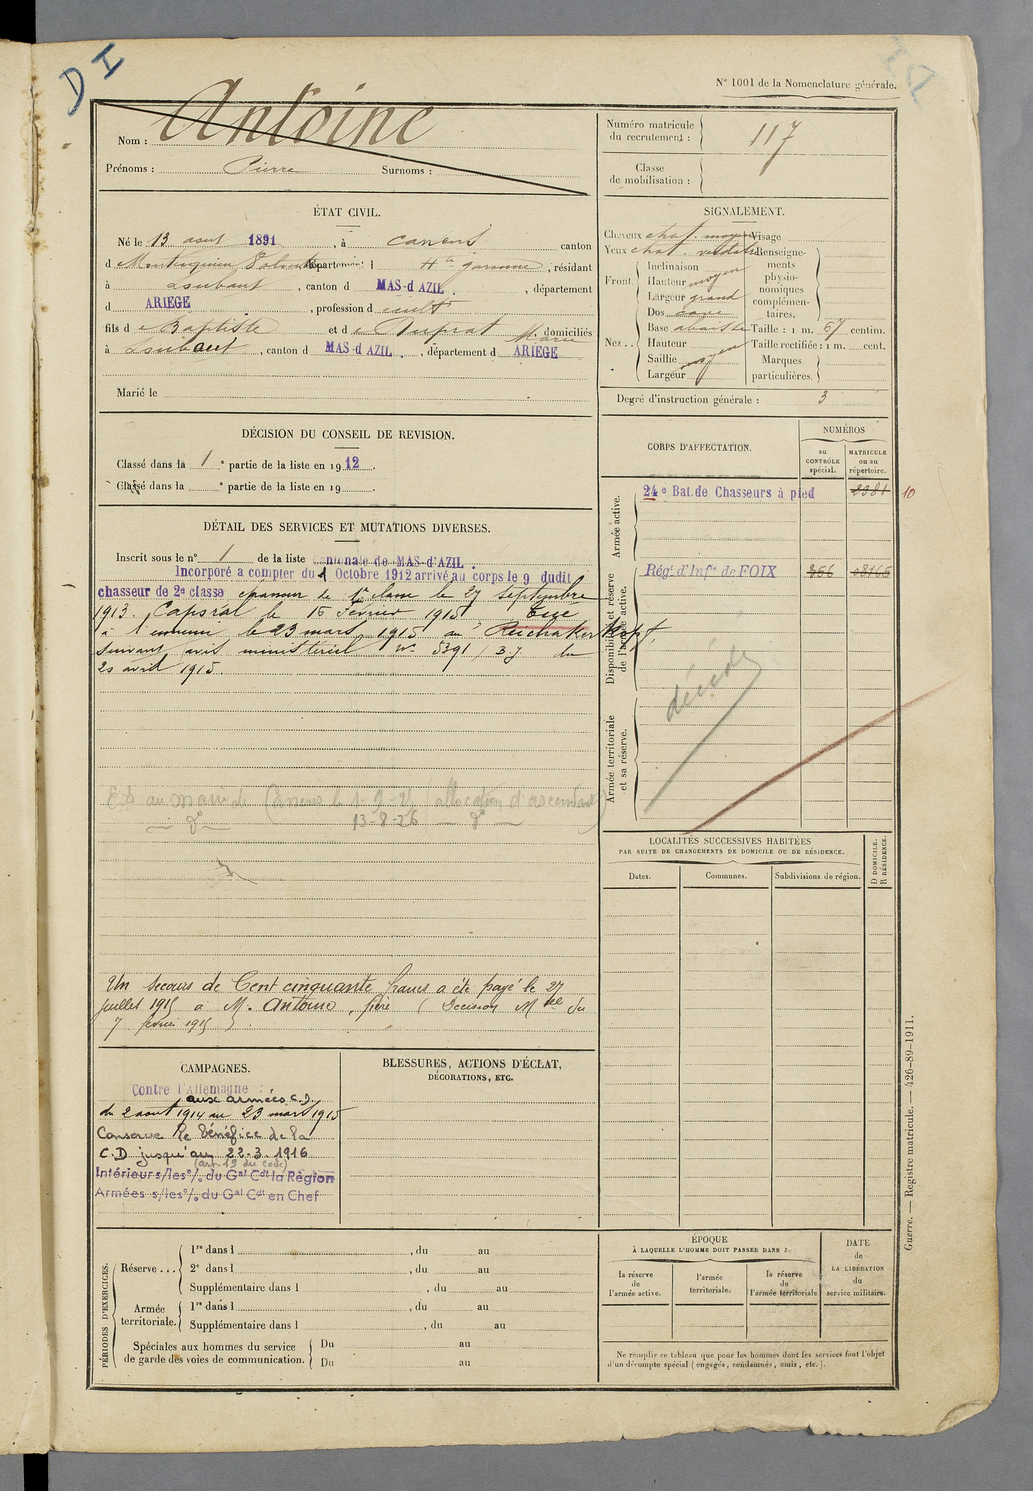 D I
N° 1001 de la Nomenclature générale.
Nom : Antoine
Prénoms : Pierre Surnoms :
Numéro matricule du recrutement : 117
Classe de mobilisation :
ÉTAT CIVIL.
Né le 13 aout 1891, à Canens canton
d Montesquieu Volvestre département d Hte garonne, résidant
à Loubaut, canton d MAS-d'AZIL, département
d ARIEGE, profession d cultr
fils d e Baptiste et d e Duprat Marie domiciliés
à Loubaut, canton d MAS-d'AZIL, département d ARIEGE
Marié le
SIGNALEMENT.
Cheveux chat. moyen
Yeux chat. verdâtre
Front.
Inclinaison
Hauteur moyen
Largeur grand
Nez..
Dos cave
Base abaissée
Hauteur
Saillie moyen
Largeur
Visage
Renseignements physionomiques complémentaires.
Taille : 1 m. 67 centim.
Taille rectifiée : 1 m. cent.
Marques particulières.
Degré d'instruction générale : 3
DÉCISION DU CONSEIL DE REVISION.
Classé dans la 1 e partie de la liste en 1912.
Classé dans la e partie de la liste en 19 .
CORPS D'AFFECTATION.
NUMÉROS
au CONTRÔLE spécial.
MATRICULE ou au répertoire.
Armée active.
24e Bat. de Chasseurs à pied 2381 10
Disponibilité et réserve de l'armée active.
Rég.t d'Inf.ie de FOIX
Armée territoriale et sa réserve.
décédé
DÉTAIL DES SERVICES ET MUTATIONS DIVERSES.
Inscrit sous le n° 1 de la liste cantonale de MAS-d'AZIL.
Incorporé a compter du 1 Octobre 1912 arrivé au corps le 9 dudit
chasseur de 2e classe chasseur de 1e classe le 27 septembre
1913. Caporal le 15 Février 1915 Tué
à l'ennemi le 23 mars 1915 au Reichakerkopf.
Suivant avis ministériel No 5391 / B.J du
20 avril 1915.
au maire de Canens le 1-2-21 allocation d'ascendants
do 13-8-26 do
Un secours de Cent cinquante francs a été payé le 27
juillet 1915 à M. Antoine, père ( Décision Mlle du
7 février 1915 ).
LOCALITÉS SUCCESSIVES HABITÉES
PAR SUITE DE CHANGEMENTS DE DOMICILE OU DE RÉSIDENCE.
Dates.
Communes.
Subdivisions de région.
D DOMICILE.
R RÉSIDENCE.
CAMPAGNES.
Contre l'Allemagne :
aux armées C.D.
du 2 aout 1914 au 23 mars 1915
Conserve le bénéfice de la
C.D jusqu'au 22-3-1916
(art. 19 du code)
Intérieur s/les o/ du Gal Cdt la Région
Armées s/les o/ du Gal Cdt en Chef
BLESSURES, ACTIONS D'ÉCLAT,
DÉCORATIONS, ETC.
PÉRIODES D'EXERCICES.
Réserve ...
1re dans l , du au
2e dans l , du au
Supplémentaire dans l , du au
Armée territoriale.
1re dans l , du au
Supplémentaire dans l , du au
Spéciales aux hommes du service
de garde des voies de communication.
Du au
Du au
ÉPOQUE
À LAQUELLE L'HOMME DOIT PASSER DANS :
la réserve de l'armée active.
l'armée territoriale.
la réserve de l'armée territoriale
DATE de LA LIBÉRATION du service militaire.
Ne remplir ce tableau que pour les hommes dont les services font l'objet
d'un décompte spécial (engagés, condamnés, omis, etc.).
Guerre. — Registre matricule. — 426-89-1911.